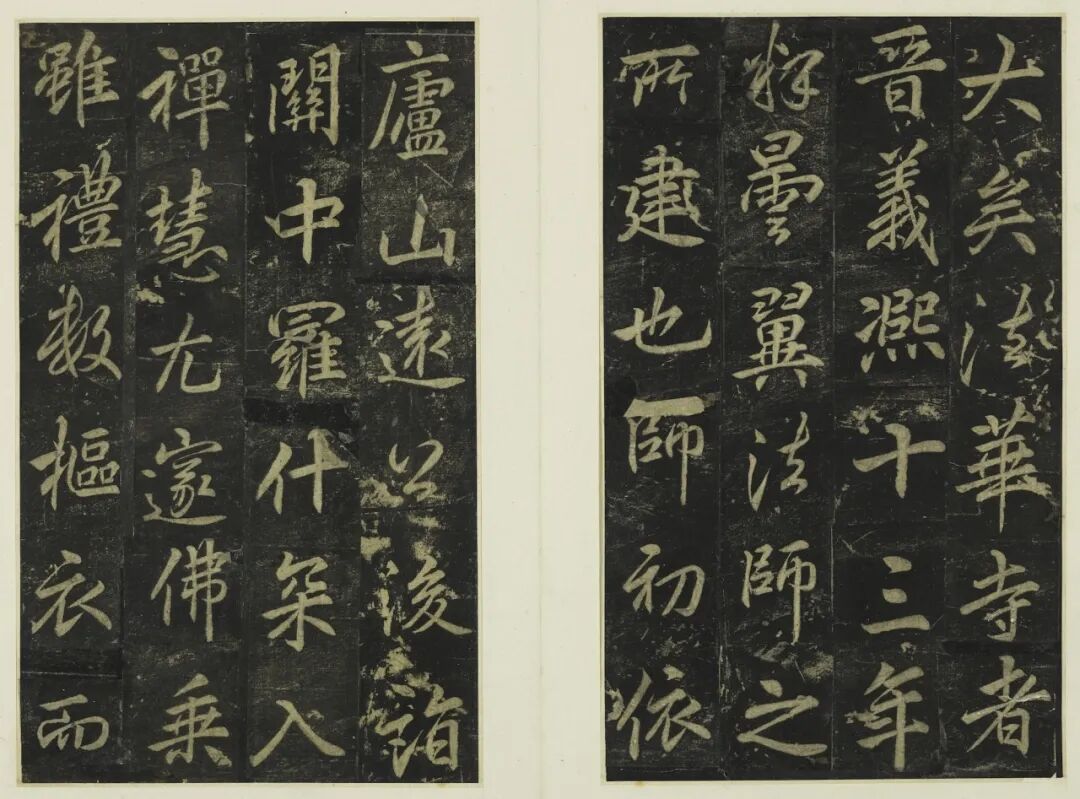 大矣法華寺者
晉義凞十三年
釋曇翼法師之
所建也師初依
廬山遠公後詣
關中羅什架入
禪慧尤邃佛乗
雖禮數摳衣而